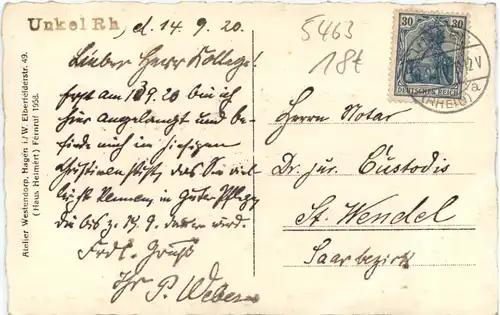 Unkel Rh, d. 14.9.20.
5463
18t
Lieber Herr Kollege!
Erst am 13.9.20 bin ich
hier angelangt und be-
finde mich im hiesigen
Christinenstift, das Sie viel-
leicht kennen, in guter Pflege,
die bis z. 19.9. dauern wird.
Frdl. Gruß
Ihr P. Weber
Atelier Westendorp, Hagen i./W. Elberfelderstr. 49.
(Haus Heimert) Fernruf 1958.
30 30
DEUTSCHES REICH
12V
(RHEIN)
Herrn Notar
Dr. jur. Custodis
St. Wendel
Saarbezirk